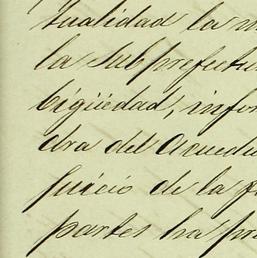 tualidad la
la Subprefectu
bigüedad, infor
dra del Acuedu
juicio de la
partes ha pro